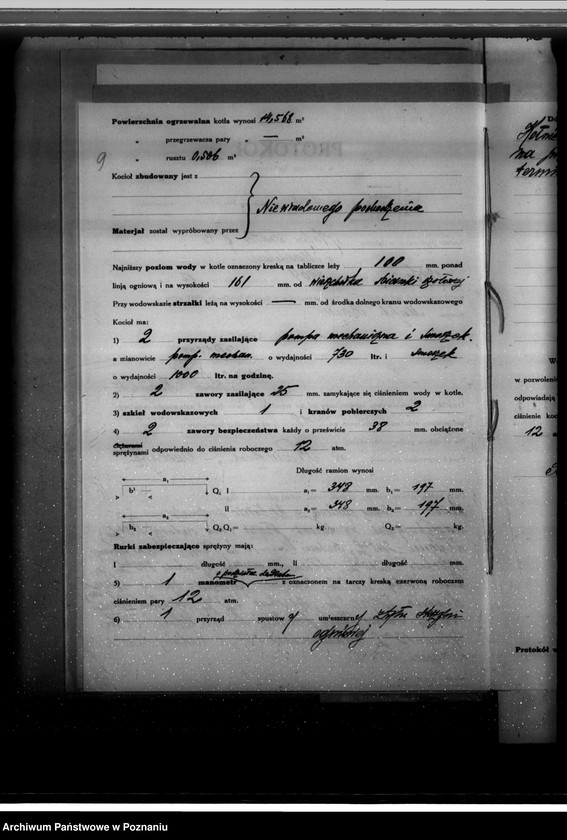 Powierzchnia ogrzewalna kotła wynosi 14,568 m²
„ przegrzewacza pary „ — m²
9
„ rusztu 0,506 m²
Kocioł zbudowany jest z
Niewiadomego pochodzenia
Materjał został wypróbowany przez
Najniższy poziom wody w kotle oznaczony kreską na tabliczce leży 100 mm. ponad
linją ogniową i na wysokości 161 mm. od wierzchołka ścianki czołowej
Przy wodowskazie strzałki leżą na wysokości — mm. od środka dolnego kranu wodowskazowego
Kocioł ma:
1) 2 przyrządy zasilające pompa mechaniczna i smoczek.
a mianowicie pomp. mechan. o wydajności 730 ltr. i smoczek
o wydajności 1000 ltr. na godzinę.
2) 2 zawory zasilające 25 mm. zamykające się ciśnieniem wody w kotle.
3) szkieł wodowskazowych 1 i kranów pobierczych 2
4) 2 zawory bezpieczeństwa każdy o prześwicie 38 mm. obciążone
sprężynami odpowiednio do ciśnienia roboczego 12 atm.
Długość ramion wynosi
a₁ b¹ Q₁ I a₁ = 348 mm. b₁ = 197 mm.
II a₂ = 348 mm. b₂ = 197 mm.
a₂ b₂ Q₂ Q₁ = kg. Q₂ = kg.
Rurki zabezpieczające sprężyny mają:
I długość mm., II długość mm.
5) 1 manometr z oznaczonem na tarczy kreską czerwoną roboczem
ciśnieniem pary 12 atm.
6) 1 przyrząd spustowy umieszczony
ogniowej
Protokół
w pozwoleni
odpowiadają
ciśnienie
12
na
Archiwum Państwowe w Poznaniu